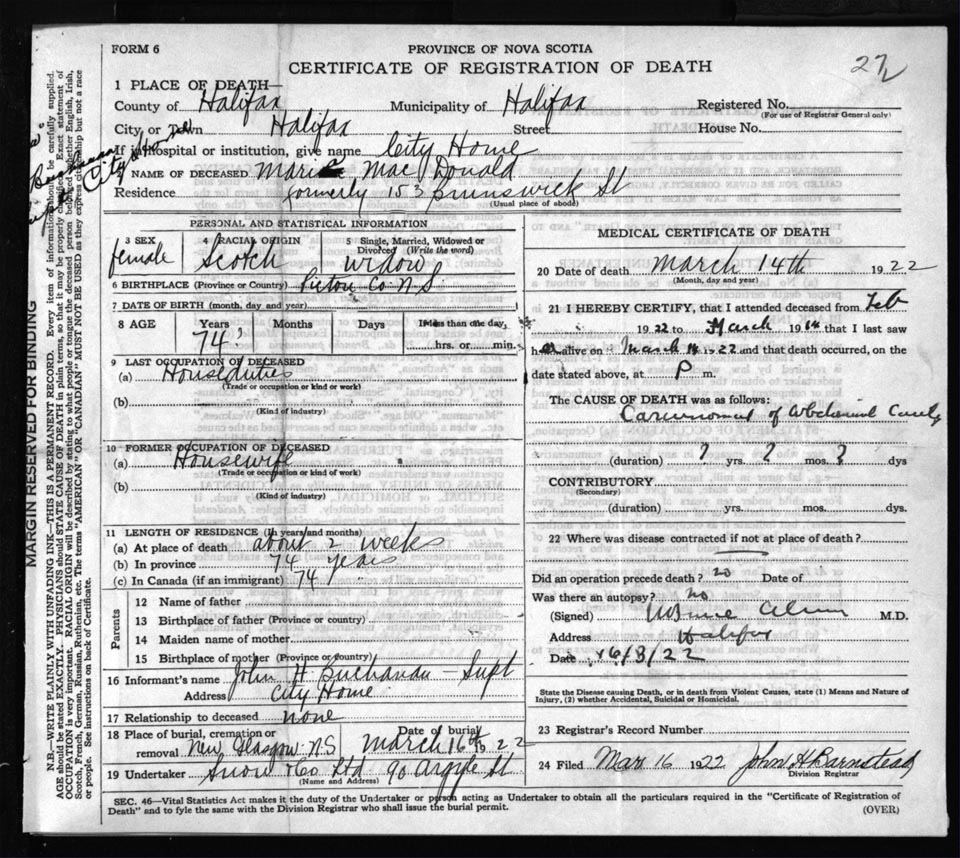 FORM 6
PROVINCE OF NOVA SCOTIA
CERTIFICATE OF REGISTRATION OF DEATH
27
1 PLACE OF DEATH—
County of Halifax Municipality of Halifax Registered No.
(For use of Registrar General only)
City or Town Halifax Street House No.
If in hospital or institution, give name City Home
2 NAME OF DECEASED Marie MacDonald
Residence formerly 153 Brunswick St
(Usual place of abode)
PERSONAL AND STATISTICAL INFORMATION
3 SEX 4 RACIAL ORIGIN 5 Single, Married, Widowed or Divorced (Write the word)
female Scotch Widow
6 BIRTHPLACE (Province or Country) Pictou Co N.S
7 DATE OF BIRTH (month, day and year)
8 AGE Years Months Days If less than one day,
74 hrs. or min.
9 LAST OCCUPATION OF DECEASED
(a) Houseduties
(Trade or occupation or kind or work)
(b)
(Kind of industry)
10 FORMER OCCUPATION OF DECEASED
(a) Housewife
(Trade or occupation or kind of work)
(b)
(Kind of industry)
11 LENGTH OF RESIDENCE (In years and months)
(a) At place of death about 2 weeks
(b) In province 74 years
(c) In Canada (if an immigrant) 74
Parents
12 Name of father
13 Birthplace of father (Province or country)
14 Maiden name of mother
15 Birthplace of mother (Province or country)
16 Informant's name John H Buchanan - Supt
Address City Home
17 Relationship to deceased none
18 Place of burial, cremation or removal New Glasgow N.S Date of burial March 16th 1922
19 Undertaker Snow & Co Ltd 90 Argyle St
(Name and Address)
MEDICAL CERTIFICATE OF DEATH
20 Date of death March 14th 1922
(Month, day and year)
21 I HEREBY CERTIFY, that I attended deceased from Feb
1922 to March 1914 that I last saw
her alive on March 14 1922 and that death occurred, on the
date stated above, at P m.
The CAUSE OF DEATH was as follows:
Carcinoma of Abdominal Cavity
(duration) ? yrs. ? mos. ? dys
CONTRIBUTORY
(Secondary)
(duration) yrs. mos. dys.
22 Where was disease contracted if not at place of death?
Did an operation precede death? no Date of
Was there an autopsy? no
(Signed) M.D.
Address Halifax
Date 16/3/22
State the Disease causing Death, or in death from Violent Causes, state (1) Means and Nature of
Injury, (2) whether Accidental, Suicidal or Homicidal.
23 Registrar's Record Number
24 Filed Mar 16 1922 John H Barnstead
Division Registrar
SEC. 46—Vital Statistics Act makes it the duty of the Undertaker or person acting as Undertaker to obtain all the particulars required in the "Certificate of Registration of
Death" and to fyle the same with the Division Registrar who shall issue the burial permit.
(OVER)
MARGIN RESERVED FOR BINDING
N.B.—WRITE PLAINLY WITH UNFADING INK—THIS IS A PERMANENT RECORD. Every item of information should be carefully supplied.
AGE should be stated EXACTLY. PHYSICIANS should STATE CAUSE OF DEATH in plain terms, so that it may be properly classified. Exact statement of
OCCUPATION is very important. RACIAL ORIGIN will be described by stating to what people or tongue the deceased person belonged, whether English, Irish,
Scotch, French, German, Russian, Ruthenian, etc. The terms "AMERICAN" OR "CANADIAN" MUST NOT BE USED as they express citizenship but not a race
or people. See instructions on back of Certificate.
Buchanan
City Home